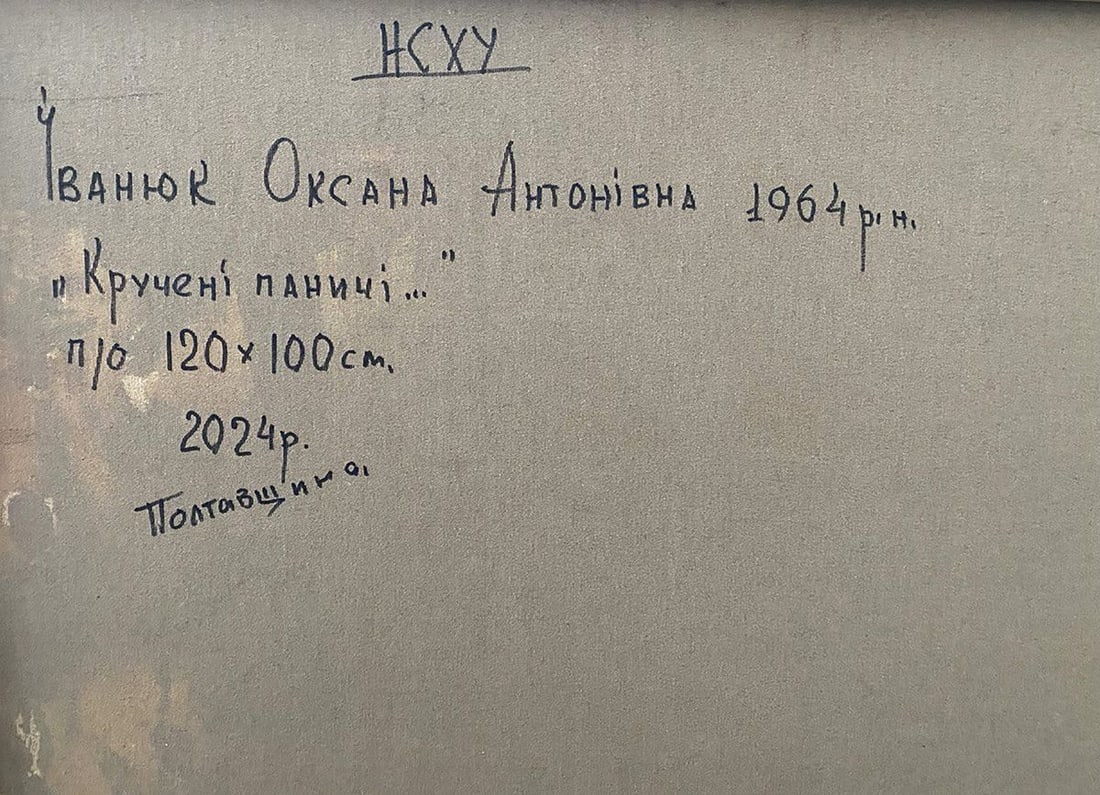 НСХУ
Іванюк Оксана Антонівна 1964 р.н.
„Кручені паничі..."
п/о 120х100см.
2024р.
Полтавщина